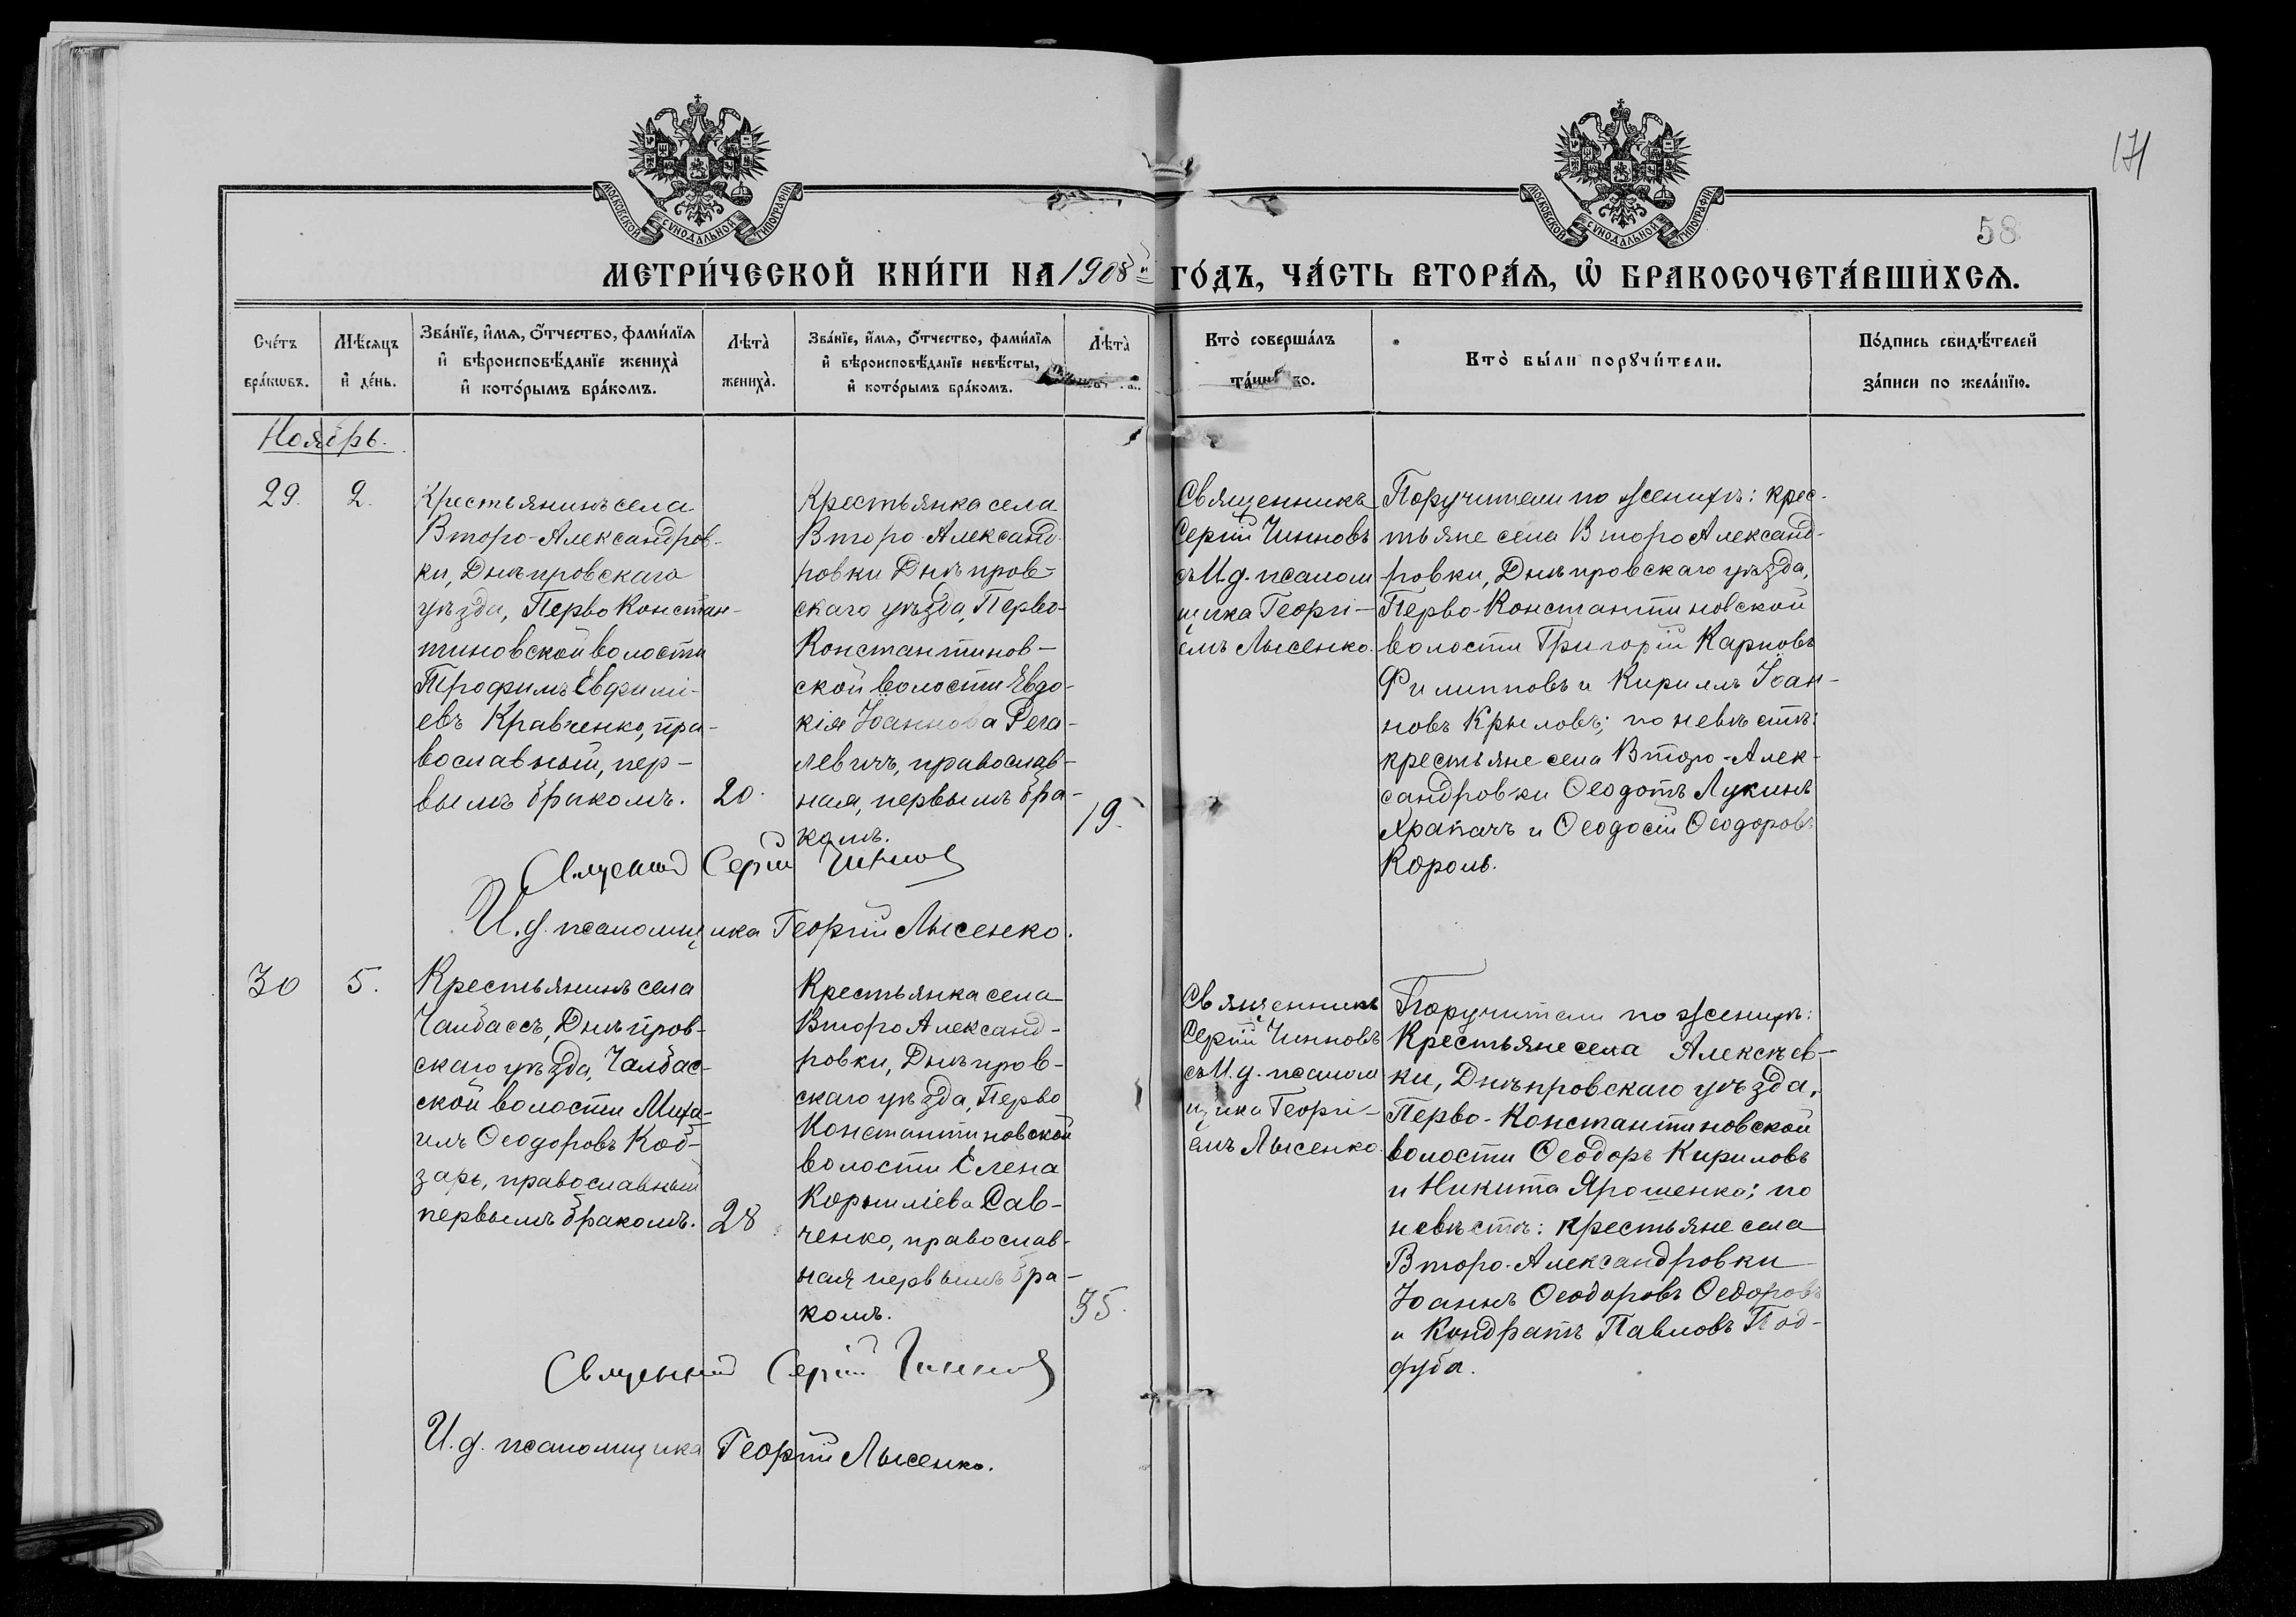 171
МОСКОВСКОЙ СУНОДАЛЬНОЙ ТИПОГРАФІИ
МОСКОВСКОЙ СУНОДАЛЬНОЙ ТИПОГРАФІИ
58
МЕТРИ́ЧЕСКОЙ КНИ́ГИ НА 1908 й ГО́ДЪ, ЧА́СТЬ ВТОРА́Я, Ѿ БРАКОСОЧЕТА́ВШИХСЯ.
Сче́тъ
бра́кѡвъ.
Мѣ́сяцъ
и҆ де́нь.
Зва́нїе, и҆́мя, ѻ҆́тчество, фами́лїя
и҆ вѣроисповѣ́данїе жениха̀
и҆ кото́рымъ бра́комъ.
Лѣта̀
жениха̀.
Зва́нїе, и҆́мя, ѻ҆́тчество, фами́лїя
и҆ вѣроисповѣ́данїе невѣ́сты,
и҆ кото́рымъ бра́комъ.
Лѣта̀
Кто̀ соверша́лъ
Кто̀ бы́ли порꙋчи́тели.
По́дпись свидѣ́телей
за́писи по жела́нїю.
Ноябрь.
29.
2.
Крестьянинъ села
Второ-Александров-
ки, Днѣпровскаго
уѣзда, Перво Констан-
тиновской волости
Трофимъ Евфимі-
евъ Кравченко, пра-
вославный, пер-
вымъ бракомъ.
20.
Крестьянка села
Второ-Александ-
ровки Днѣпров-
скаго уѣзда, Перво-
Константинов-
ской волости Евдо-
кія Іоаннова Рега-
левичъ, православ-
ная, первымъ бра-
комъ.
19.
Священникъ
Сергій Чинновъ
съ И.д. псалом
щика Георгі-
емъ Лысенко.
Поручители по женихѣ: крес-
тьяне села Второ Александ-
ровки, Днѣпровскаго уѣзда,
Перво-Константиновской
волости Григорій Карповъ
Филипповъ и Кириллъ Іоан-
новъ Крыловъ; по невѣстѣ:
крестьяне села Второ-Алек-
сандровки Ѳеодотъ Лукинъ
Храпачъ и Ѳеодосій Ѳеодоровъ
Король.
Священник Сергій Чиннов
И.д. псаломщика Георгій Лысенко.
30
5.
Крестьянинъ села
Чалбассъ, Днѣпров-
скаго уѣзда, Чалбас-
ской волости Миха-
илъ Ѳеодоровъ Коб-
зарь, православный
первымъ бракомъ.
28
Крестьянка села
Второ Александ-
ровки, Днѣпров-
скаго уѣзда, Перво
Константиновской
волости Елена
Корниліева Сав-
ченко, православ-
ная первымъ бра-
комъ.
35.
Священникъ
Сергій Чинновъ
съ И.д. псалом
щика Георгі-
емъ Лысенко.
Поручители по женихѣ:
Крестьяне села Алексѣев-
ки, Днѣпровскаго уѣзда,
Перво-Константиновской
волости Ѳеодоръ Кириловъ
и Никита Ярошенко; по
невѣстѣ: крестьяне села
Второ-Александровки
Іоаннъ Ѳеодоровъ Ѳедоровъ
и Кондратъ Павловъ Под-
дуба.
Священник Сергій Чиннов
И.д. псаломщика Георгій Лысенко.